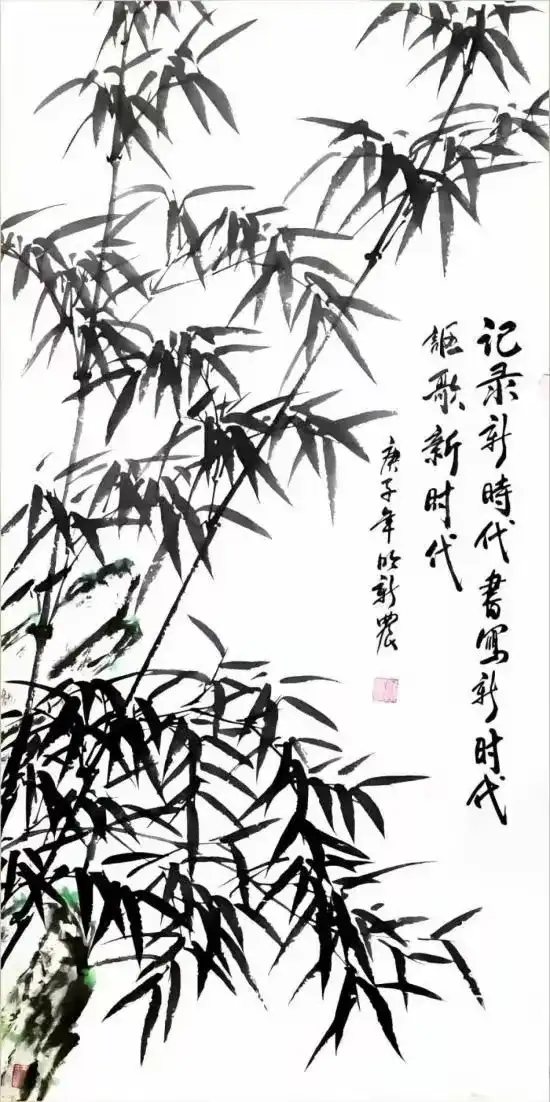 记录新時代書寫新时代
謳歌新时代
庚子年新農